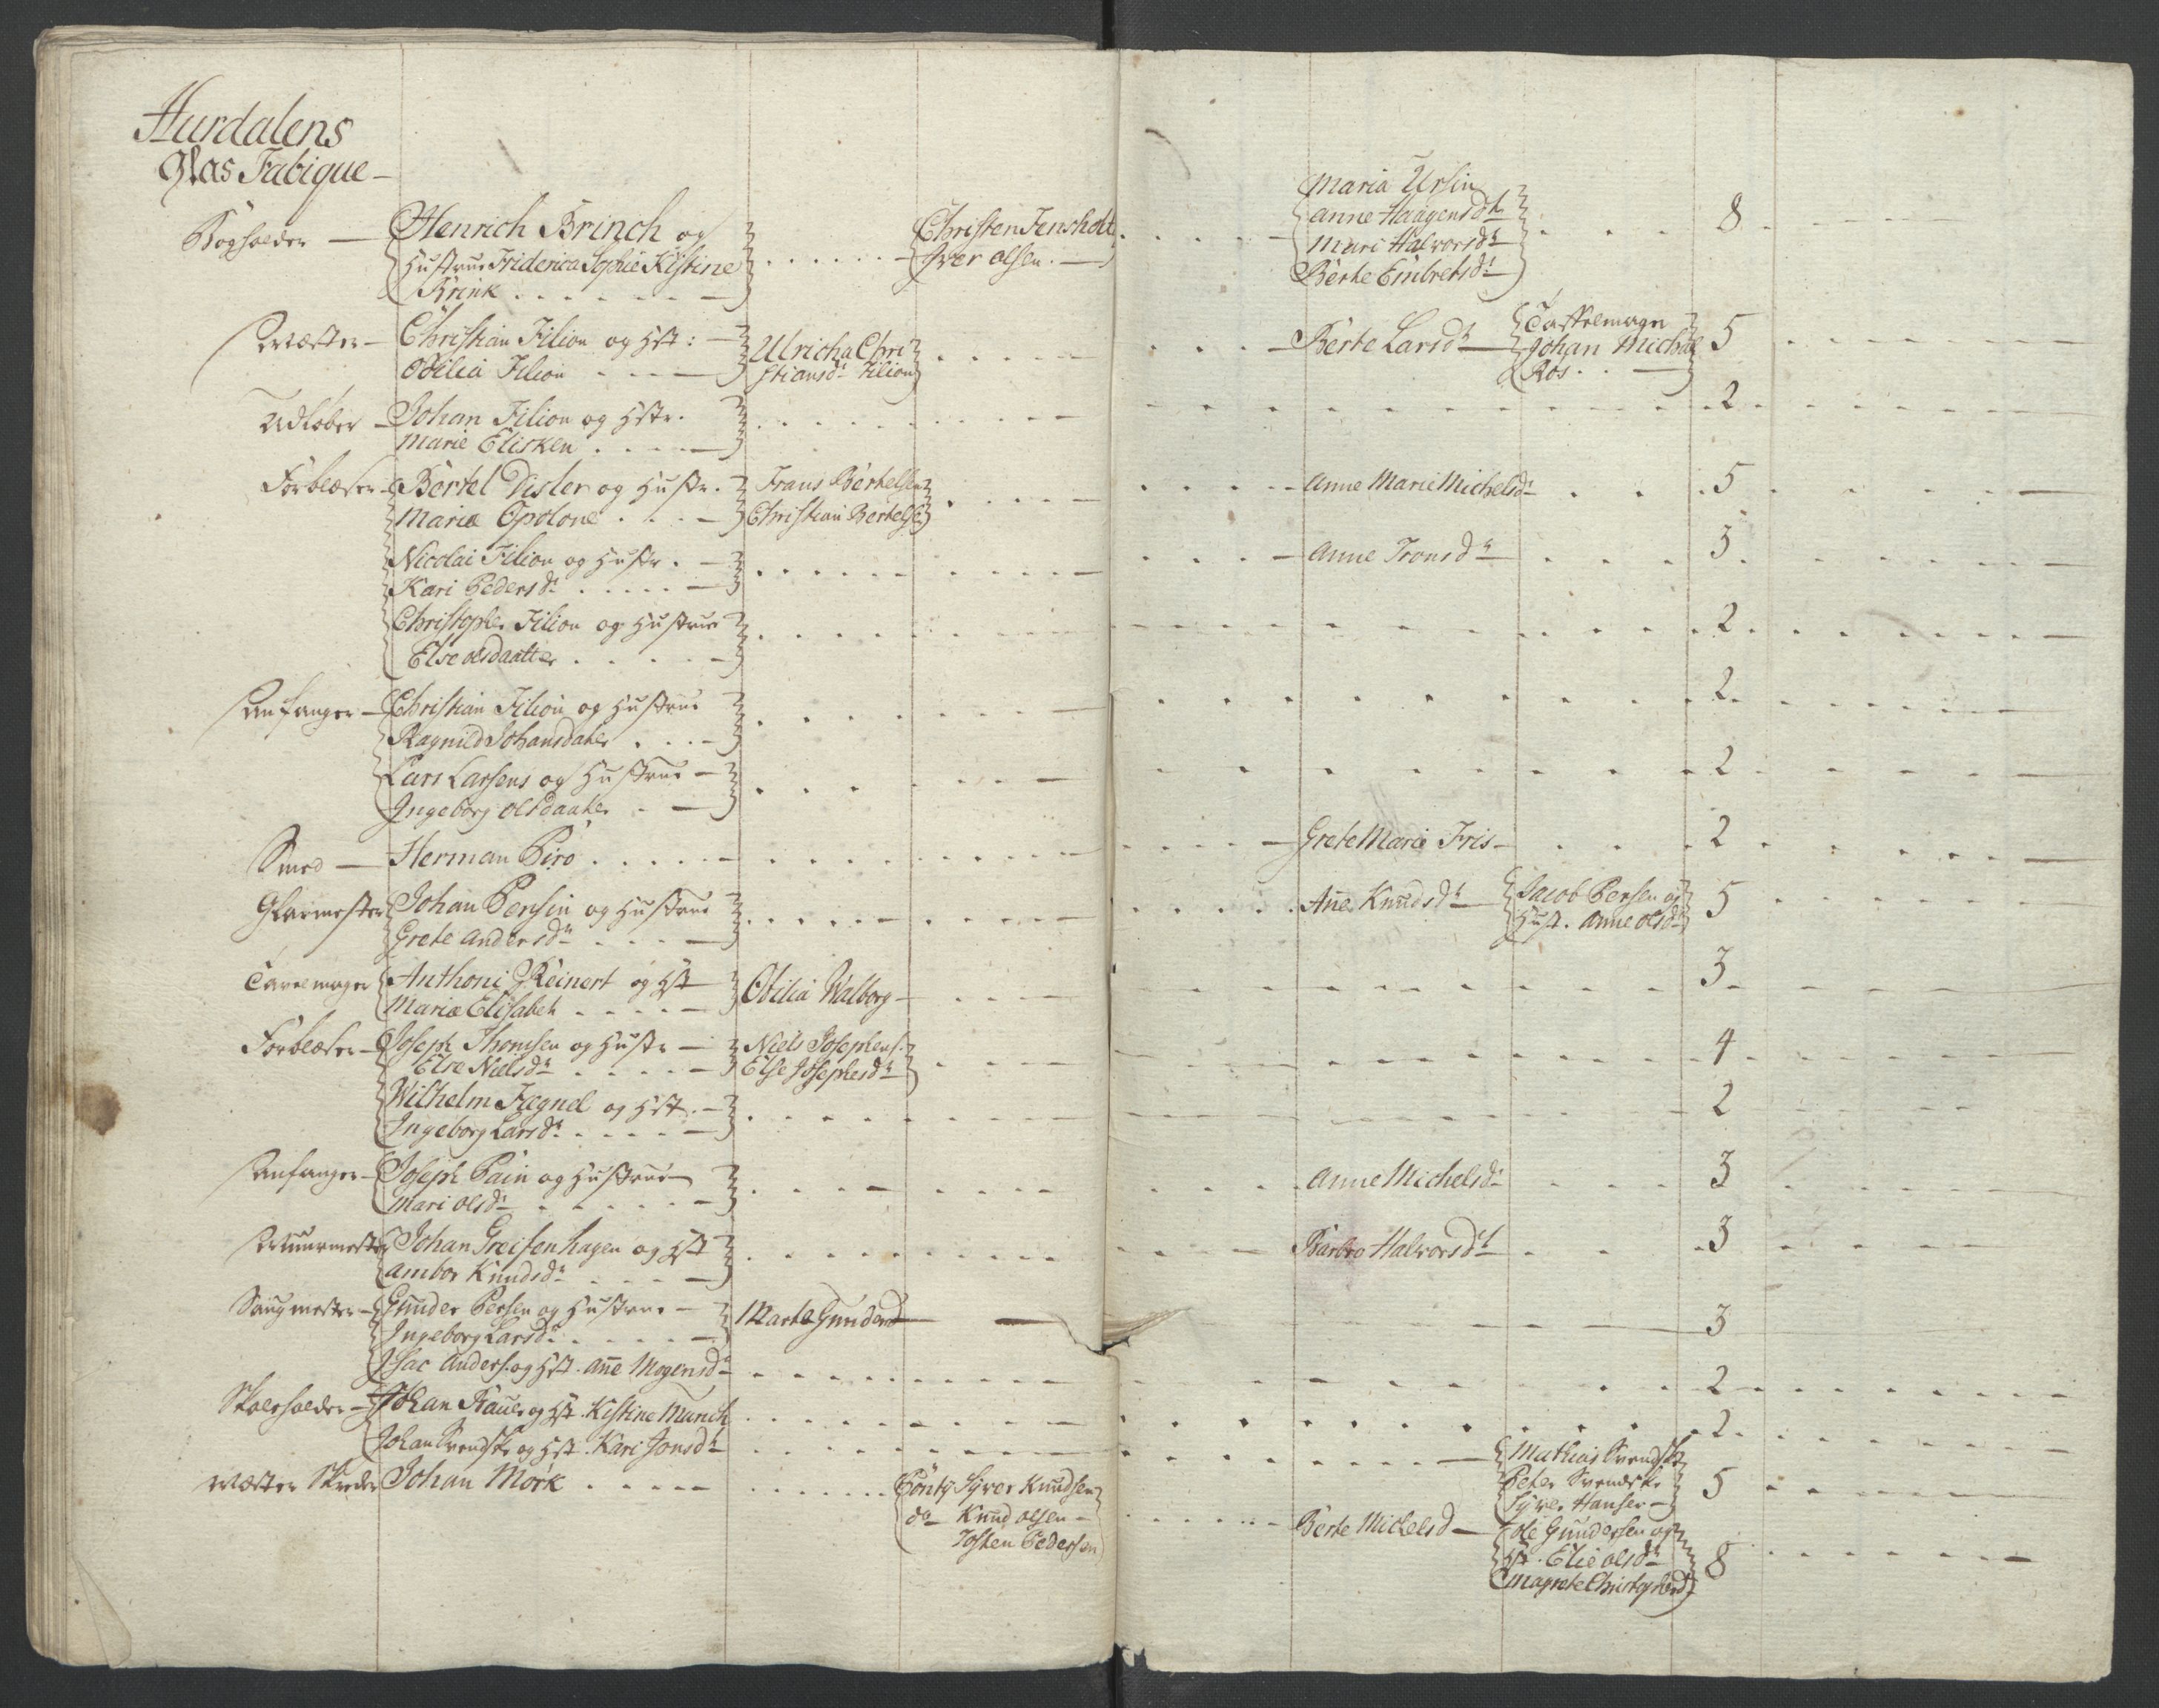 Hurdalens
Glas Fabique -
Bogholder - Henrich Brinch og
Hustrue Friderica Sophie Kistine
Brink
Christen Jensholt
Iver Olsen
Maria Ursin
Anne Haagensdtr
Mari Halvorsdtr
Berte Embretsdtr
8
Mæster - Christian Filion og Hst:
Odilia Filion
Ulricha Chri
stiansdr Filion
Berte Larsdtr
Taffelmager
Johan Michal
Ros
5
Udløber - Johan Filion og Hstr.
Marie Elisken
2
Forblæser - Bertel Disler og Hustr.
Maria Opolone
Frans Bertelsen
Christian Bertels
Anne Marie Michelsdr
5
Nicolai Filion og Hustr.
Kari Pedersdr
Anne Tronsdr
3
Christopher Filion og Hustrue
Else Olsdaatter
2
Anfanger - Christian Filion og Hustrue
Ragnild Johansdater
2
Lars Larsens og Hustrue -
Ingeborg Olsdaater
2
Smed - Herman Piro
Grete Marie Fris
2
Glarmester Johan Persin og Hustrue
Grete Andersdr
Anne Knudsdr
Jacob Persen og
Hust. Anne Olsdr
5
Tavlemager Anthoni Reinert og Hst
Maria Elisabeh
Otilia Walborg
3
Forblæser - Joseph Thomsen og Hustr
Else Nielsdr
Niels Josephens.
Else Josephesdr
4
Wilhelm Fægnel og Hst.
Ingeborg Larsdr
2
Anfanger - Joseph Pain og Hustrue
Mari Olsdr
Anne Michelsdr
3
Muurmester Johan Greifenhagen og Hst
Ambor Knudsdr
Barbro Halvorsdr
3
Saugmester - Gunder Persen og Hustrue -
Ingeborg Larsdr
Marte Gundersd
3
Isac Anders. og Hst. Anne Mogensdr
2
Skoleholder - Johan og Hst. Kistine Munch
2
Johan Svendske og Hst. Kari Jonsdr
Mathias Svendske
Peter Svendske
Syver Hansen
5
Mæster Skreder Johan Mörk
Syver Knudsen
do Knud Olsen -
Josten Pedersen
Berte Mickelsd
Ole Gundersen og
Hst. Elie Olsdr
Magrete Christophersd
8